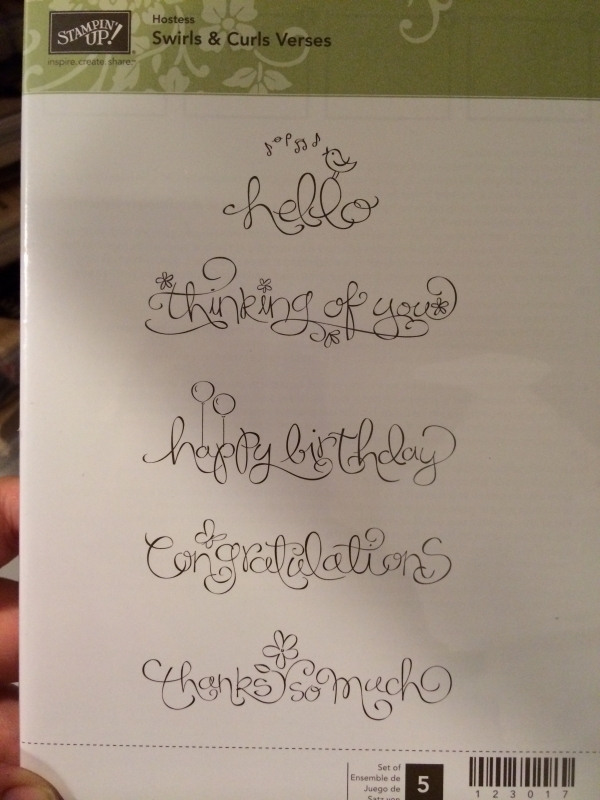 STAMPIN' UP!
inspire. create. share.
Hostess
Swirls & Curls Verses
hello
thinking of you
happy birthday
Congratulations
thanks so much
Set of
Ensemble de
Juego de
Satz von
5
123017